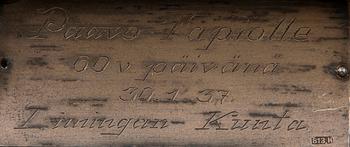 Paavo Tapiolle
60 v. päivänä
30.1.37.
Limingan Kunta
813 H